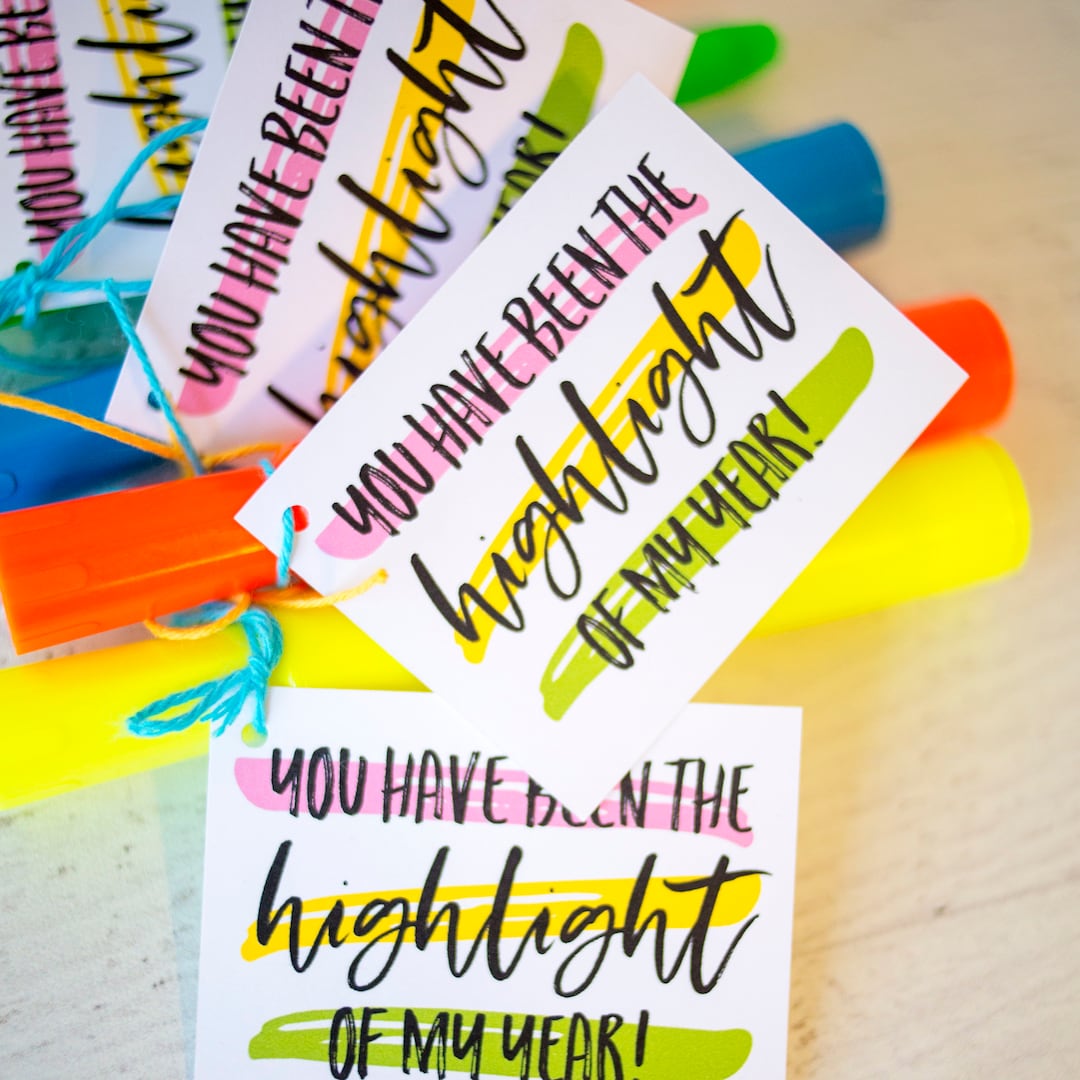 YOU HAVE
highl
YOU HAVE BEEN T
highlight
YEAR!
YOU HAVE BEEN THE
highlight
OF MY YEAR!
YOU HAVE BEEN THE
highlight
OF MY YEAR!